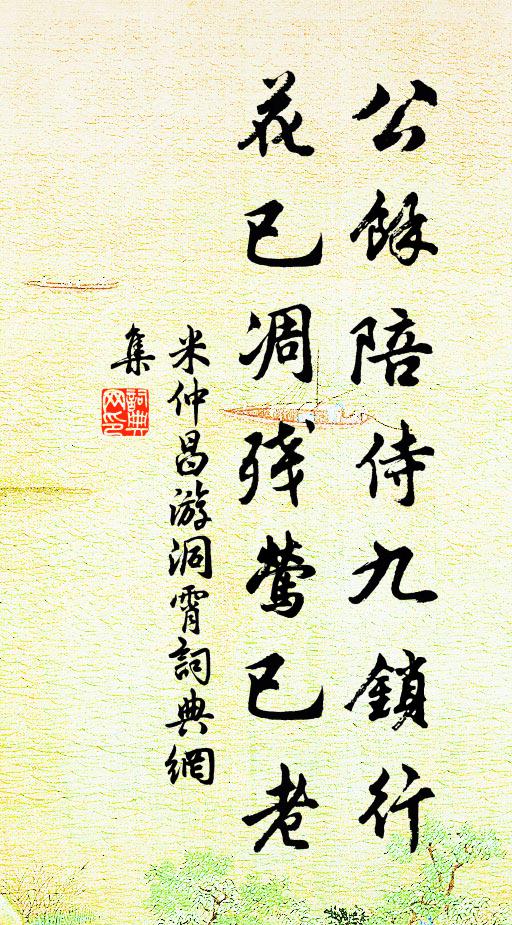 公餘陪侍九鎖行
花已凋殘鶯已老
米仲昌游洞霄詞典網
集
詞典網印